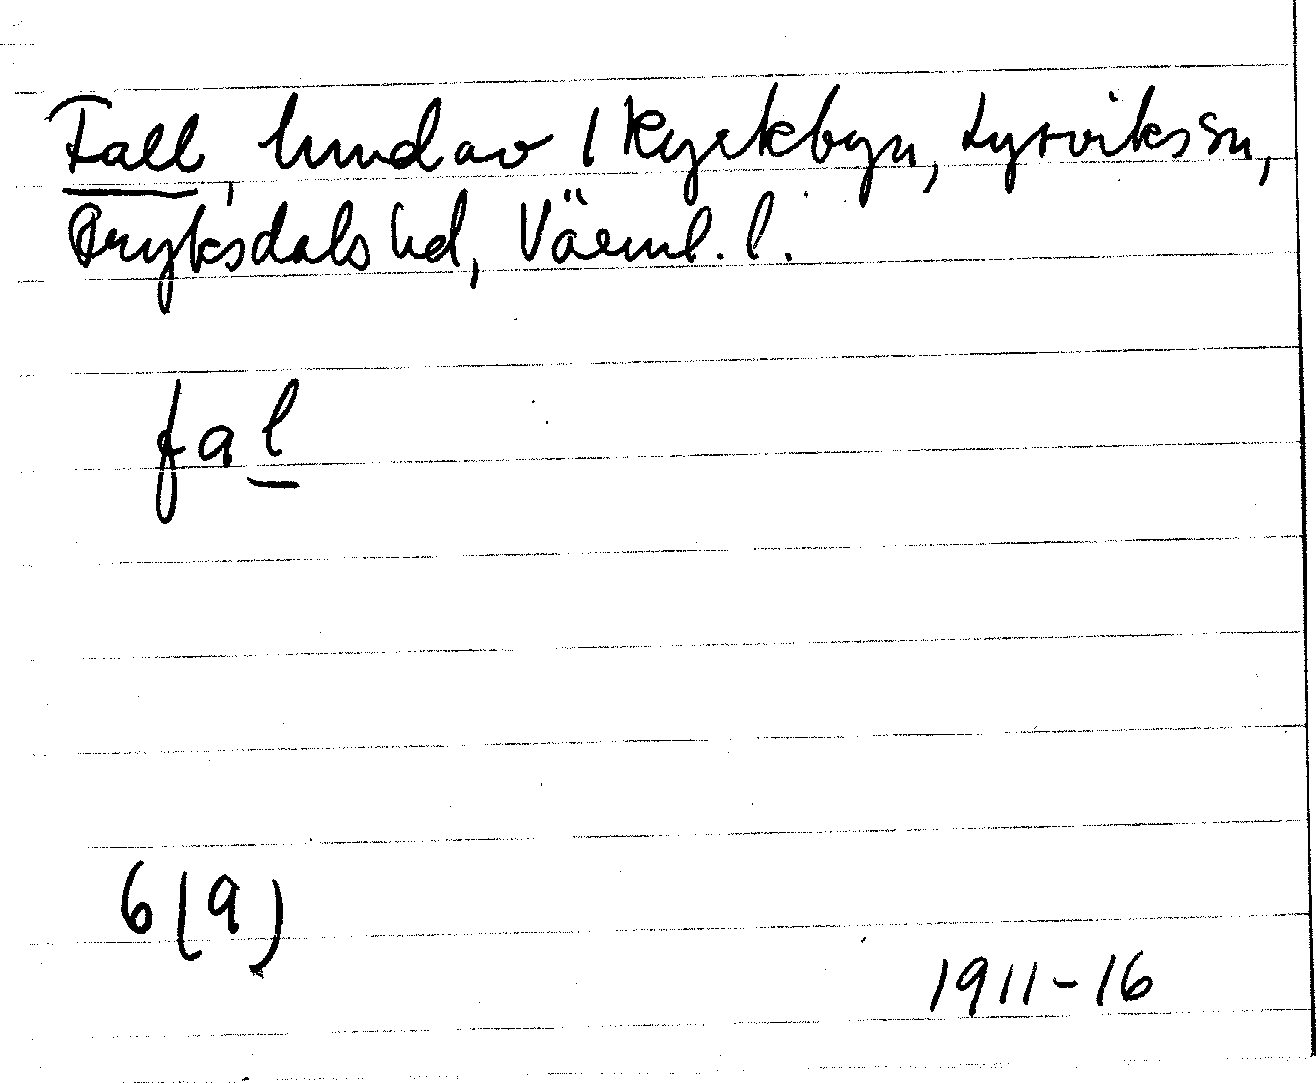 Fall, hmd av 1 Kyrkbyn, Lysviks sn,
Fryksdals hd, Värml. l.
fal
6(a)
1911-16